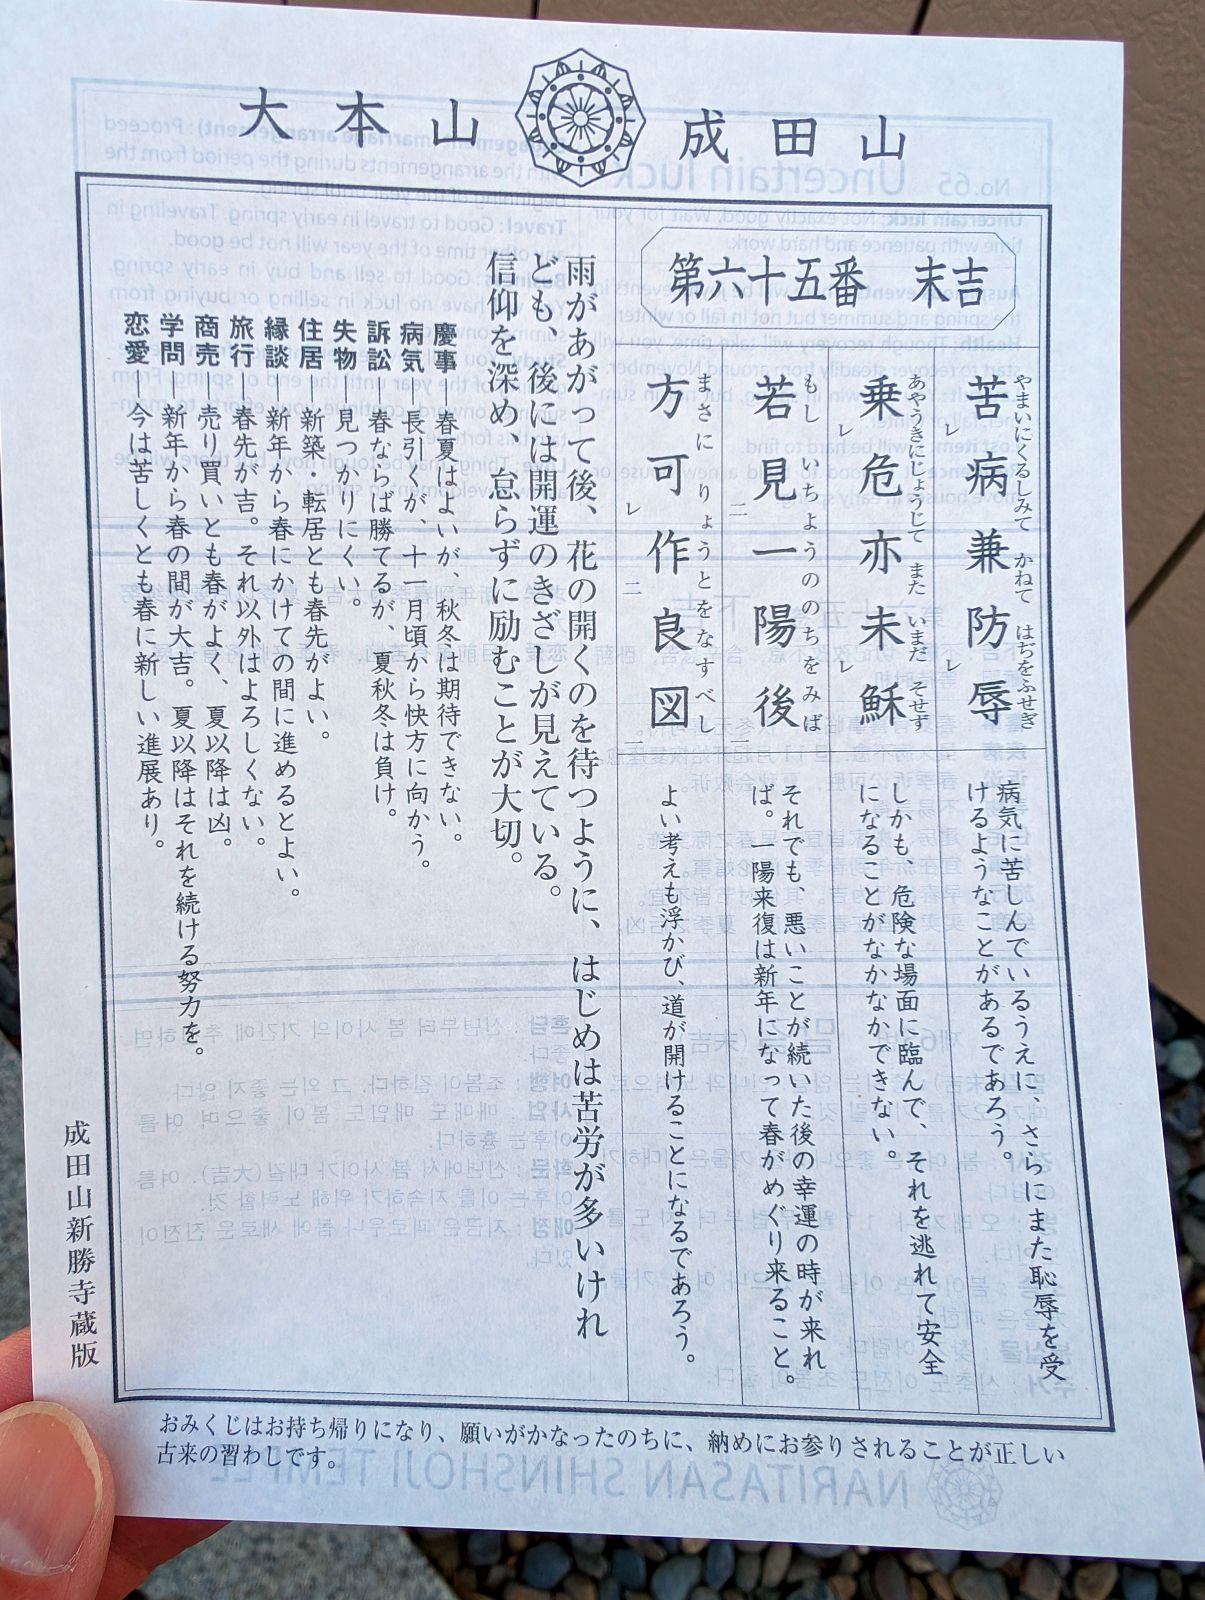 大本山 成田山
第六十五番 末吉
やまいにくるしみて かねて はぢをふせぎ
苦病兼防辱
レ レ
病気に苦しんでいるうえに、さらにまた恥辱を受
けるようなことがあるであろう。
あやうきにじょうじて また いまだ そせず
乗危亦未穌
レ レ
しかも、危険な場面に臨んで、それを逃れて安全
になることがなかなかできない。
もし いちようののちをみば
若見一陽後
二 一
それでも、悪いことが続いた後の幸運の時が来れ
ば。一陽来復は新年になって春がめぐり来ること。
まさに りょうとをなすべし
方可作良図
レ 二 一
よい考えも浮かび、道が開けることになるであろう。
雨があがって後、花の開くのを待つように、はじめは苦労が多いけれ
ども、後には開運のきざしが見えている。
信仰を深め、怠らずに励むことが大切。
慶事―春夏はよいが、秋冬は期待できない。
病気―長引くが、十一月頃から快方に向かう。
訴訟―春ならば勝てるが、夏秋冬は負け。
失物―見つかりにくい。
住居―新築・転居とも春先がよい。
縁談―新年から春にかけての間に進めるとよい。
旅行―春先が吉。それ以外はよろしくない。
商売―売り買いとも春がよく、夏以降は凶。
学問―新年から春の間が大吉。夏以降はそれを続ける努力を。
恋愛―今は苦しくとも春に新しい進展あり。
成田山新勝寺蔵版
おみくじはお持ち帰りになり、願いがかなったのちに、納めにお参りされることが正しい
古来の習わしです。